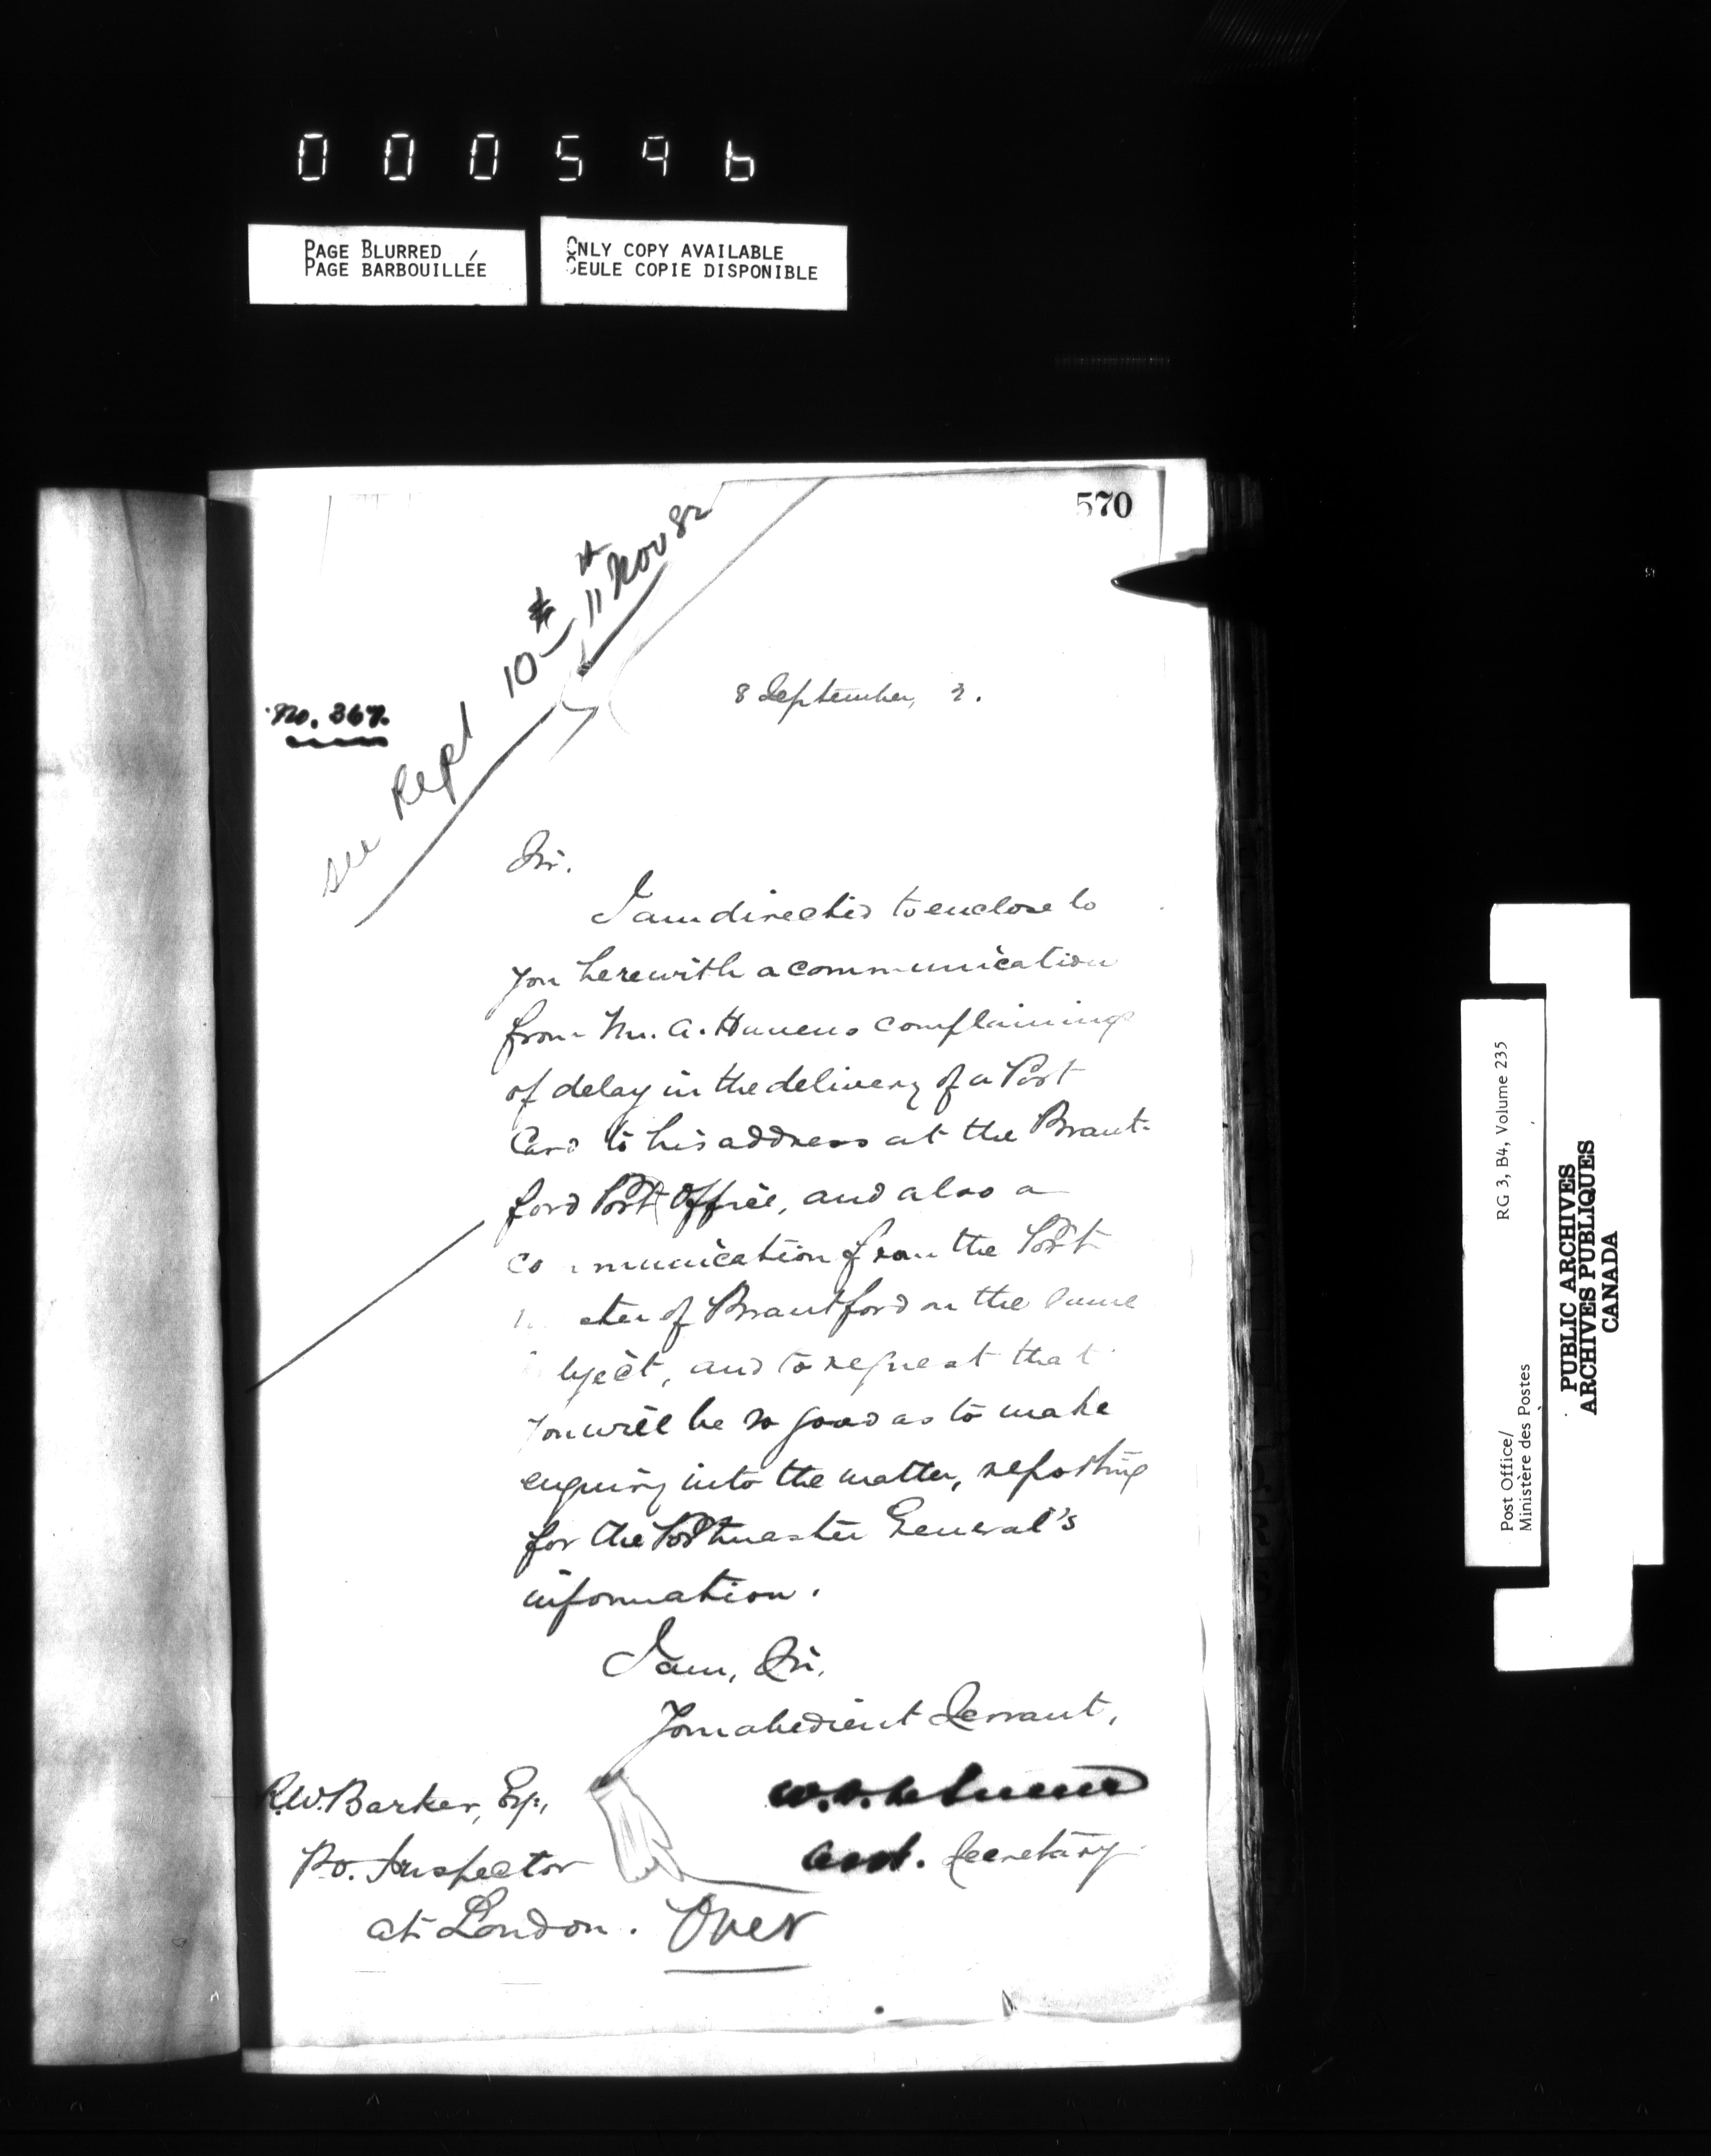 000596
PAGE BLURRED
PAGE BARBOUILLÉE
ONLY COPY AVAILABLE
SEULE COPIE DISPONIBLE
570
see Repl 10th 11th Nov 82
8 September, 2.
No. 367.
Sir.
I am directed to enclose to
you herewith a communication
from Mr. A. complaining
of delay in the delivery of a Post
Card to his address at the Brant-
ford Post Office, and also a
co munication from the Post
ster of Brantford on the same
bject, and to request that
you will be so good as to make
enquiry into the matter, reporting
for the Postmaster General's
information.
I am, Sir,
Your obedient Servant,
R.W. Barker, Esq.,
P.O. Inspector
at London.
W.D. LeSueur
Asst. Secretary
Over
Post Office/
Ministère des Postes
RG 3, B4, Volume 235
PUBLIC ARCHIVES
ARCHIVES PUBLIQUES
CANADA